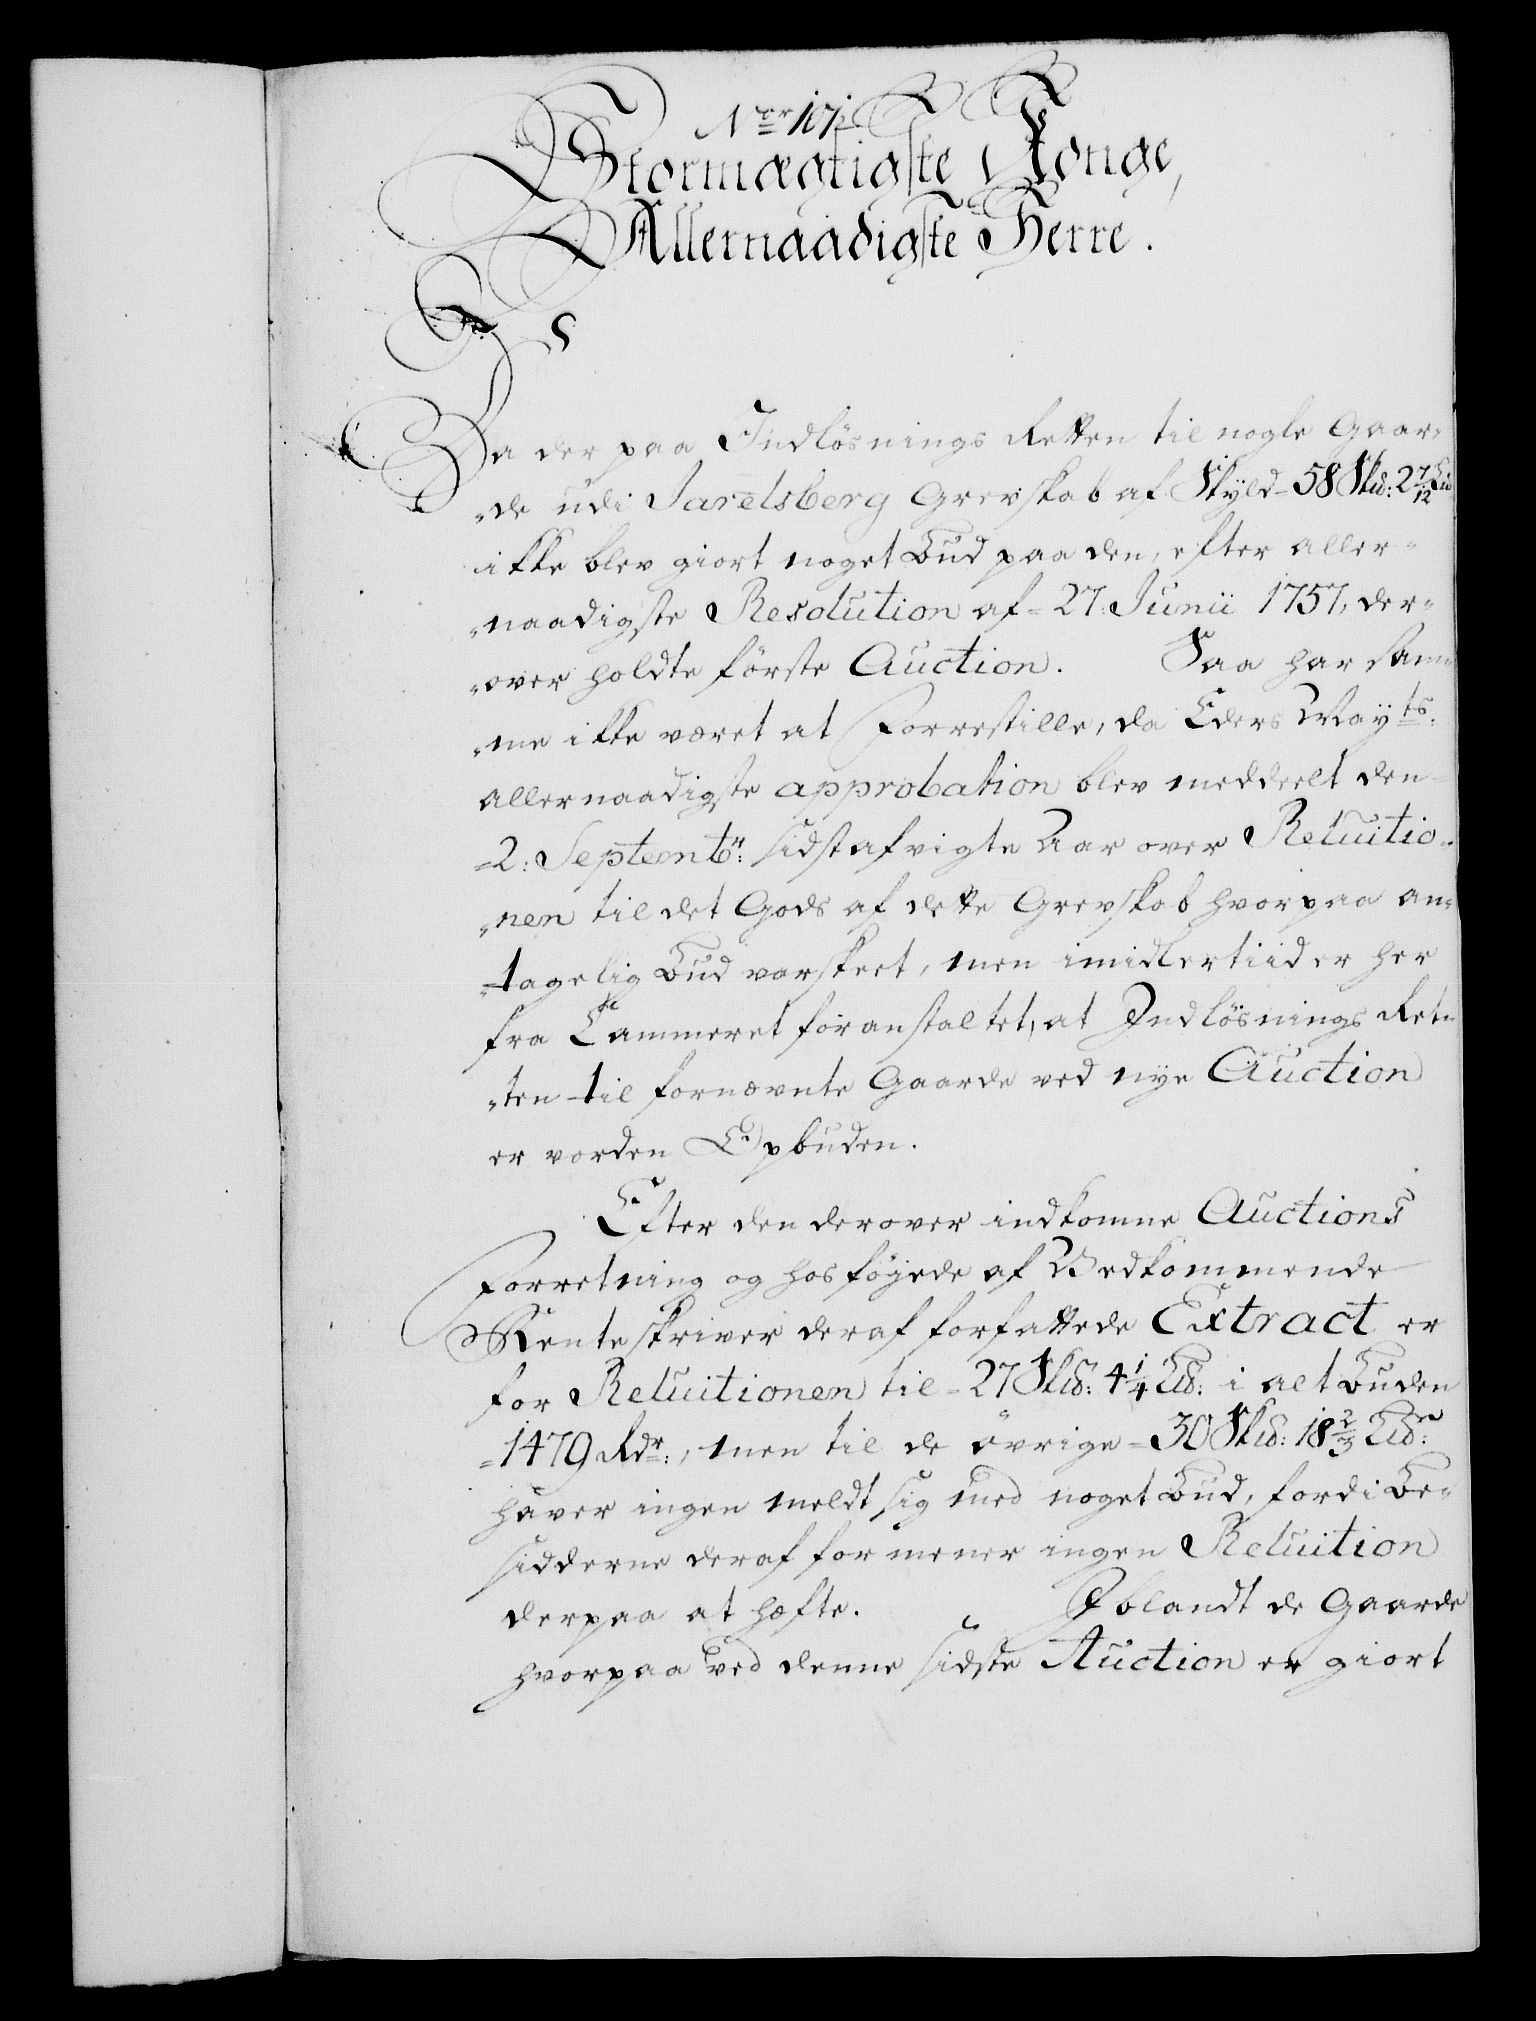 Nrr 107½
Stormægtigste Konge,
Allernaadigste Herre.
Da der paa Indlösnings Retten til nogle Gaar-
„de udi Jarelsberg Grevskab af Skyld - 58 Skd: 2 7/12 Lid
ikke blev giort noget Bud paa den, efter aller-
„naadigste Resolution af - 27. Junii 1757, der-
„over holdte förste Auction. Saa har sam-
„me ikke været at Forrestille, da Eders Mayts.
allernaadigste approbation blev meddeelt den
-2: Septembr: sidstafvigte Aar over Reluitio-
„nen til det Gods af dette Grevskab hvorpaa an-
„tagelig Bud var skeet, men imidlertiid er her
fra Cammeret foranstaltet, at Indlösnings Ret-
„ten til fornævnte Gaarde ved nye Auction
er vorden Opbuden.
Efter den derover indkomne Auctions
Forretning og hosföyede af Vedkommende
Renteskriver deraf forfattede Extract er
for Reluitionen til - 27 Skd: 4¼ Lid: i alt Buden
-1479 Rdr:, men til de övrige - 30 Skd: 18⅔ Lid:
haver ingen meldt sig med noget Bud, fordi Be-
sidderne deraf formener ingen Reluition
derpaa at hæfte. Iblandt de Gaarde
hvorpaa ved denne sidste Auction er giort